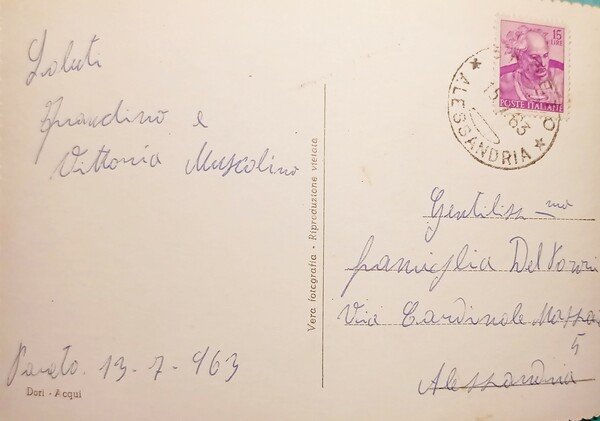 Saluti
e
Vittoria Muscolino
Pareto 13-7-963
Dori - Acqui
Vera fotografia - Riproduzione vietata
15
LIRE
POSTE ITALIANE
15.7.63
ALESSANDRIA
Gentiliss mo
famiglia Del
Via Cardinale
5
Alessandria